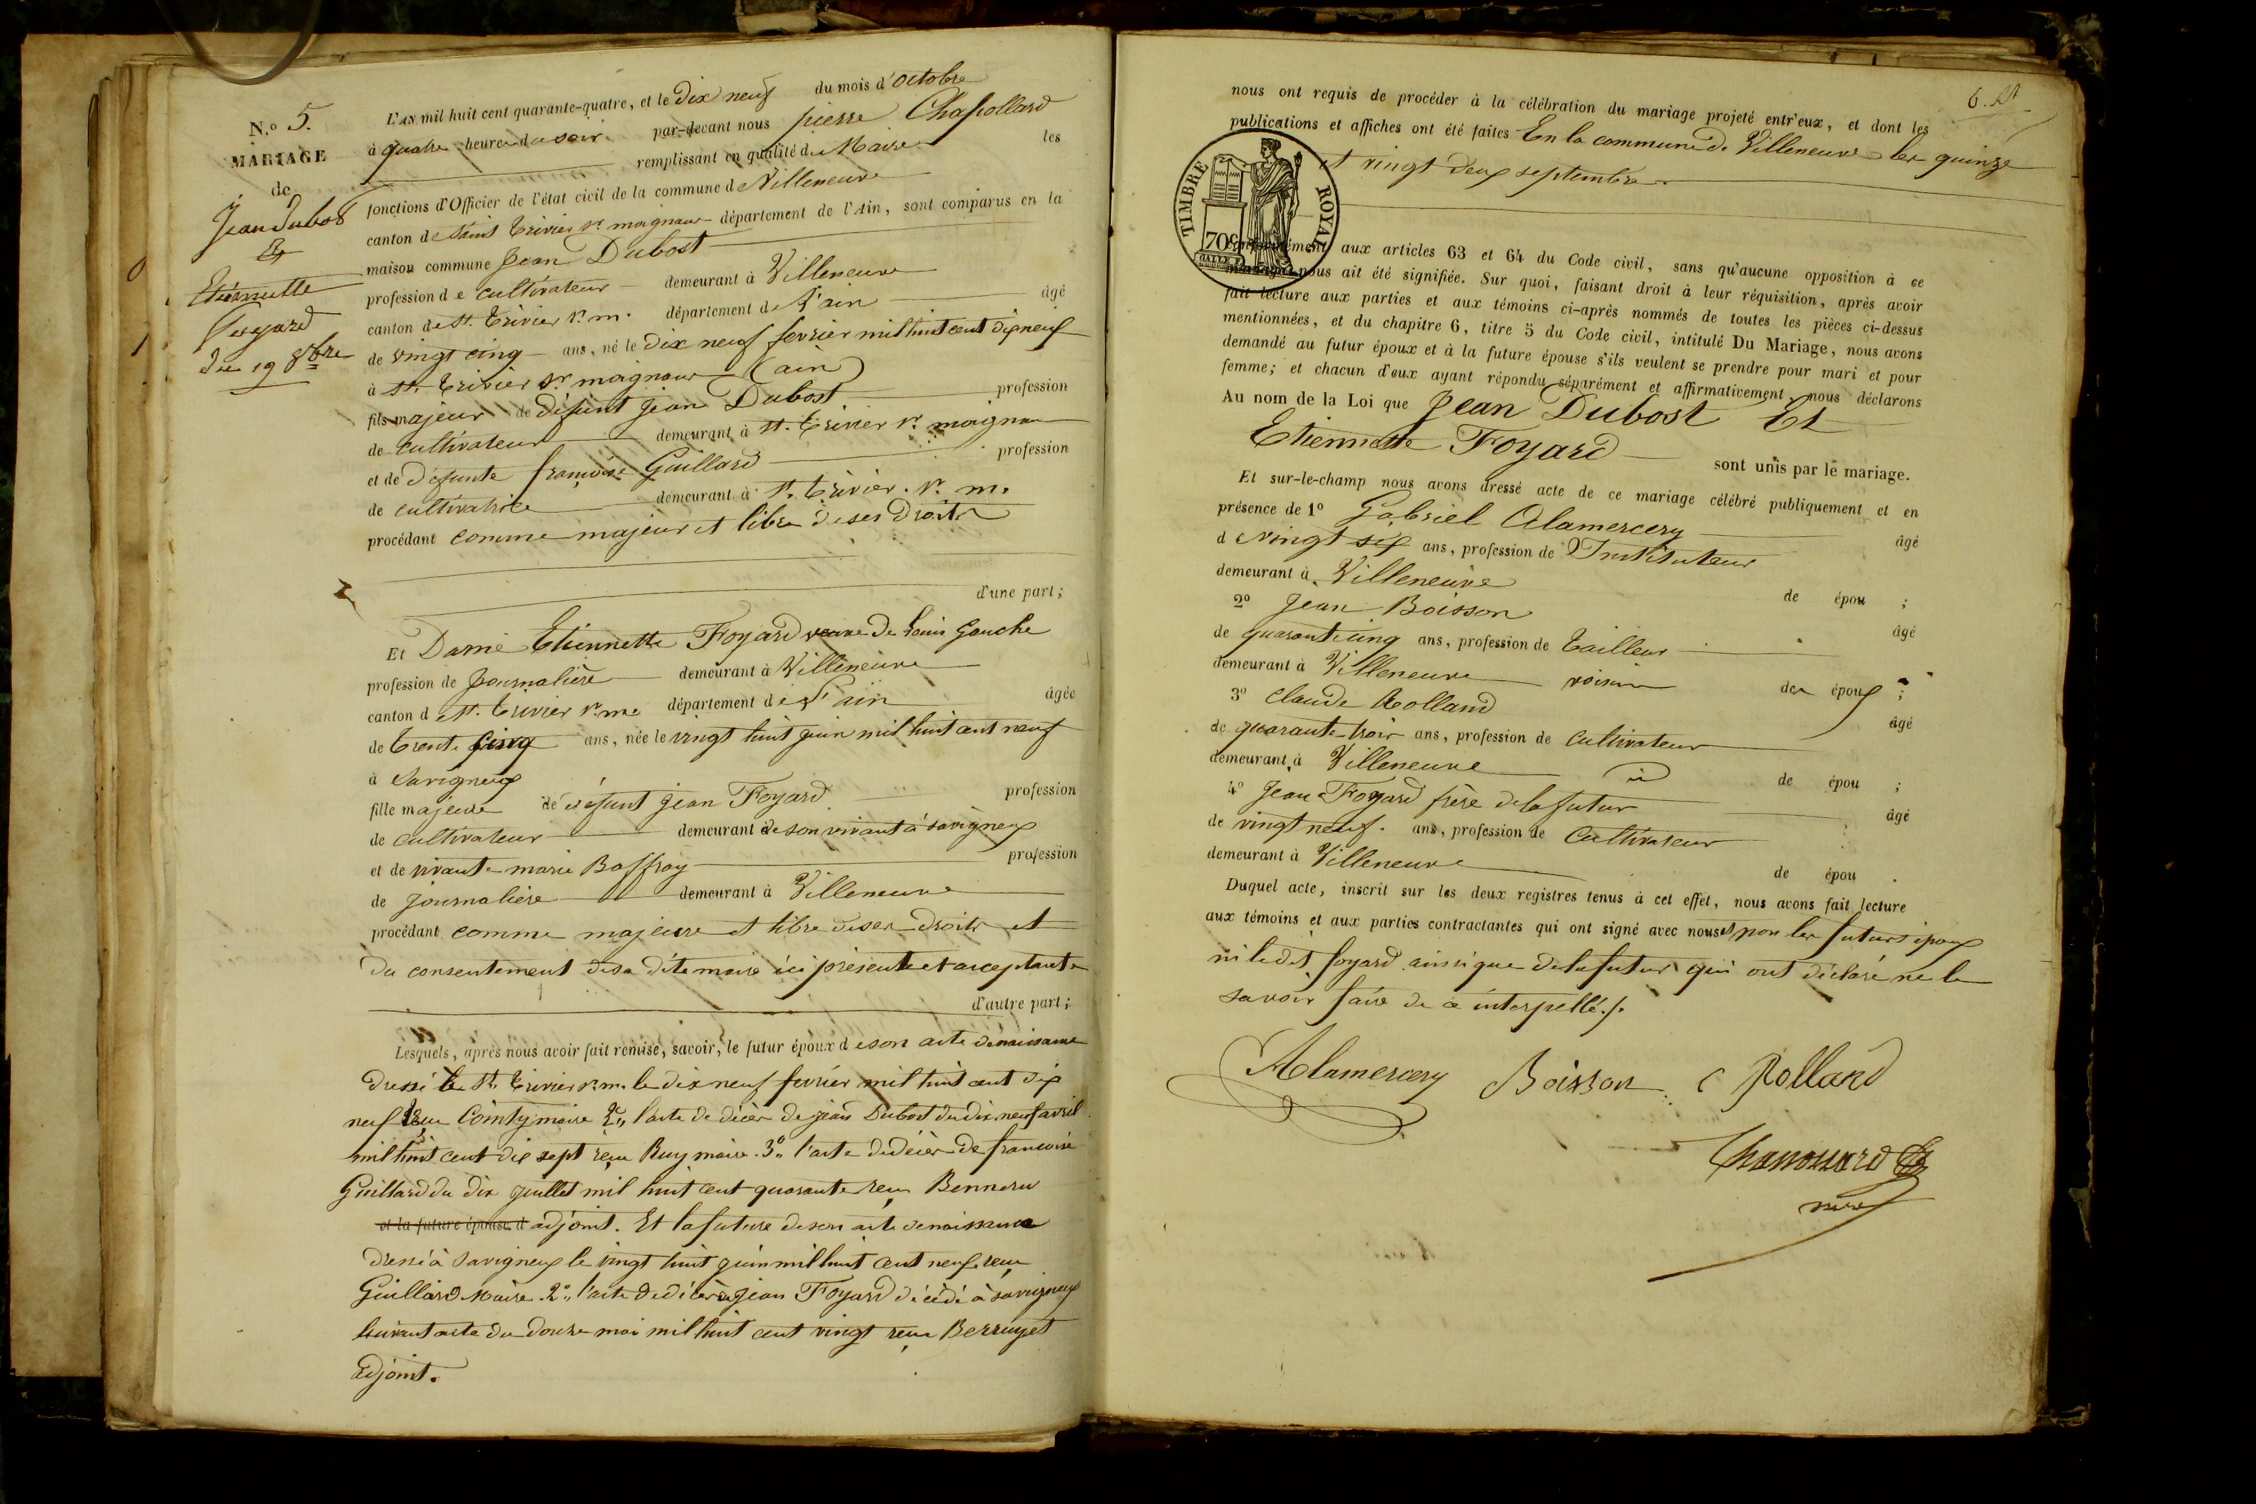 N.o 5.
MARIAGE
de
Jean Dubost
Et
Etiennette
Foyard
du 19 8bre
L'AN mil huit cent quarante-quatre, et le dix neuf du mois d'octobre
à quatre heures du soir par-devant nous pierre Chapollard
remplissant en qualité de Maire les
fonctions d'Officier de l'état civil de la commune de Villeneuve
canton de Saint Trivier sr. moignans département de l'Ain, sont comparus en la
maison commune Jean Dubost
profession de cultivateur demeurant à Villeneuve
canton de st. Trivier sr. m. département de L'ain âgé
de vingt cinq ans, né le dix neuf fevrier mil huit cent dix neuf
à st. Trivier sr moignans (ain)
fils majeur de défunt Jean Dubost profession
de cultivateur demeurant à st. Trivier sr. moignan
et de défunte françoise Guillard profession
de cultivatrice demeurant à st. Trivier. sr. m.
procédant comme majeur et libre de ses droits
d'une part;
Et Dame Etiennette Foyard veuve de Louis Gouche
profession de Journalière demeurant à Villeneuve
canton de st. Trivier sr. m. département de L'ain âgée
de Trente cinq ans, née le vingt huit juin mil huit cent neuf
à Savigneux
fille majeure de défunt Jean Foyard profession
de cultivateur demeurant de son vivant à savigneux
et de vivante marie Boffray profession
de journalière demeurant à Villeneuve
procédant comme majeure et libre de ses droits et
du consentement de sa dite mère ici présente et acceptante
d'autre part;
Lesquels, après nous avoir fait remise, savoir, le futur époux de son acte de naissance
dressé à St. Trivier sr. m. le dix neuf fevrier mil huit cent dix
neuf reçu Cointy maire 2o, l'acte de décès de jean Dubost du dix neuf avril
mil huit cent dix sept reçu Ruy maire. 3o, l'acte de décès de francoise
Guillard du dix juillet mil huit cent quarante reçu Benneru
et la future épouse d adjoint. Et la future de son acte de naissance
dressé à Savigneux le vingt huit juin mil huit cent neuf reçu
Guillard Maire. 2o, l'acte de décès de jean Foyard décédé à savigneux
suivant acte du douze mai mil huit cent vingt reçu Berruyet
adjoint.
nous ont requis de procéder à la célébration du mariage projeté entr'eux, et dont les
publications et affiches ont été faites En la commune de Villeneuve les quinze
et vingt deux septembre
TIMBRE ROYAL
70c
conformément aux articles 63 et 64 du Code civil, sans qu'aucune opposition à ce
mariage nous ait été signifiée. Sur quoi, faisant droit à leur réquisition, après avoir
fait lecture aux parties et aux témoins ci-après nommés de toutes les pièces ci-dessus
mentionnées, et du chapitre 6, titre 5 du Code civil, intitulé Du Mariage, nous avons
demandé au futur époux et à la future épouse s'ils veulent se prendre pour mari et pour
femme; et chacun d'eux ayant répondu séparément et affirmativement, nous déclarons
Au nom de la Loi que Jean Dubost Et
Etiennette Foyard sont unis par le mariage.
Et sur-le-champ nous avons dressé acte de ce mariage célébré publiquement et en
présence de 1o Gabriel Alamercery âgé
de vingt six ans, profession de Instituteur
demeurant à Villeneuve de épou ;
2o Jean Boisson âgé
de quarante cinq ans, profession de Tailleur
demeurant à Villeneuve voisin des époux ;
3o Claude Rolland âgé
de quarante trois ans, profession de Cultivateur
demeurant à Villeneuve de épou ;
4o Jean Foyard frère de la futur âgé
de vingt neuf. ans, profession de Cultivateur
demeurant à Villeneuve de épou .
Duquel acte, inscrit sur les deux registres tenus à cet effet, nous avons fait lecture
aux témoins et aux parties contractantes qui ont signé avec nous et non les futurs époux
ni le dit foyard ainsi que de la futur qui ont déclaré ne le
savoir faire de ce interpellé./.
Alamercery Boisson C Rolland